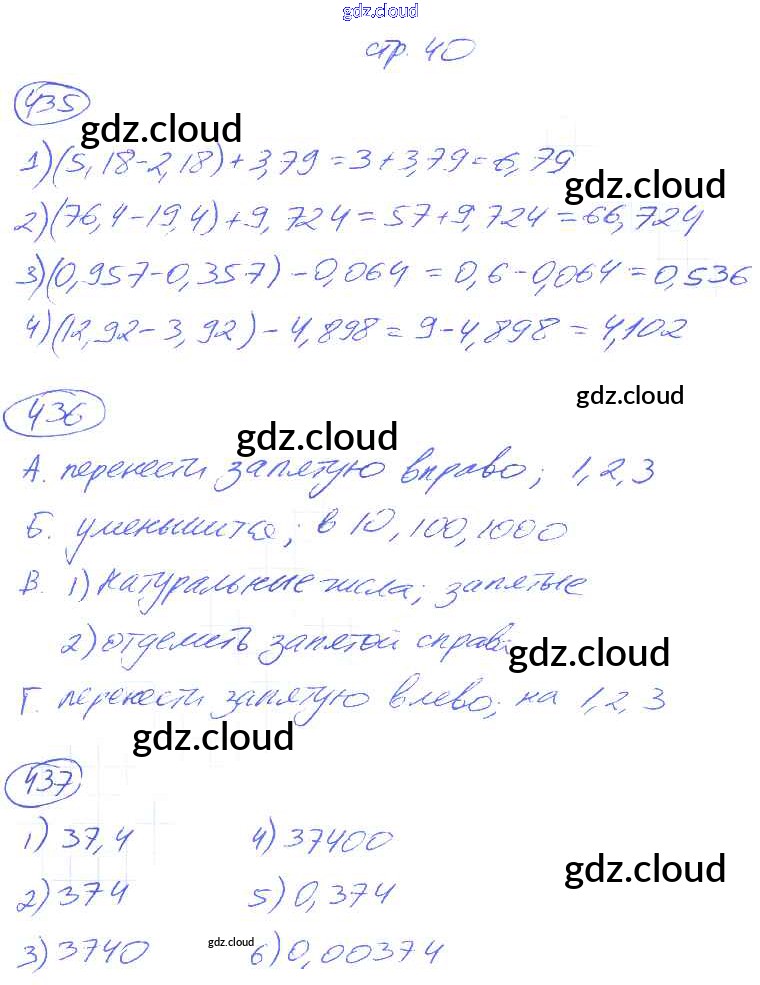 gdz.cloud
стр. 40
435
gdz.cloud
1) (5,18-2,18)+3,79=3+3,79=6,79
gdz.cloud
2) (76,4-19,4)+9,724=57+9,724=66,724
3) (0,957-0,357)-0,064=0,6-0,064=0,536
4) (12,92-3,92)-4,898=9-4,898=4,102
gdz.cloud
436
gdz.cloud
А. перенести запятую вправо; 1,2,3
Б. уменьшится; в 10,100,1000
В. 1) натуральные числа; запятые
2) отделить запятой справа
gdz.cloud
Г. перенести запятую влево; на 1,2,3
gdz.cloud
437
1) 37,4 4) 37400
gdz.cloud
2) 374 5) 0,374
3) 3740 gdz.cloud 6) 0,00374